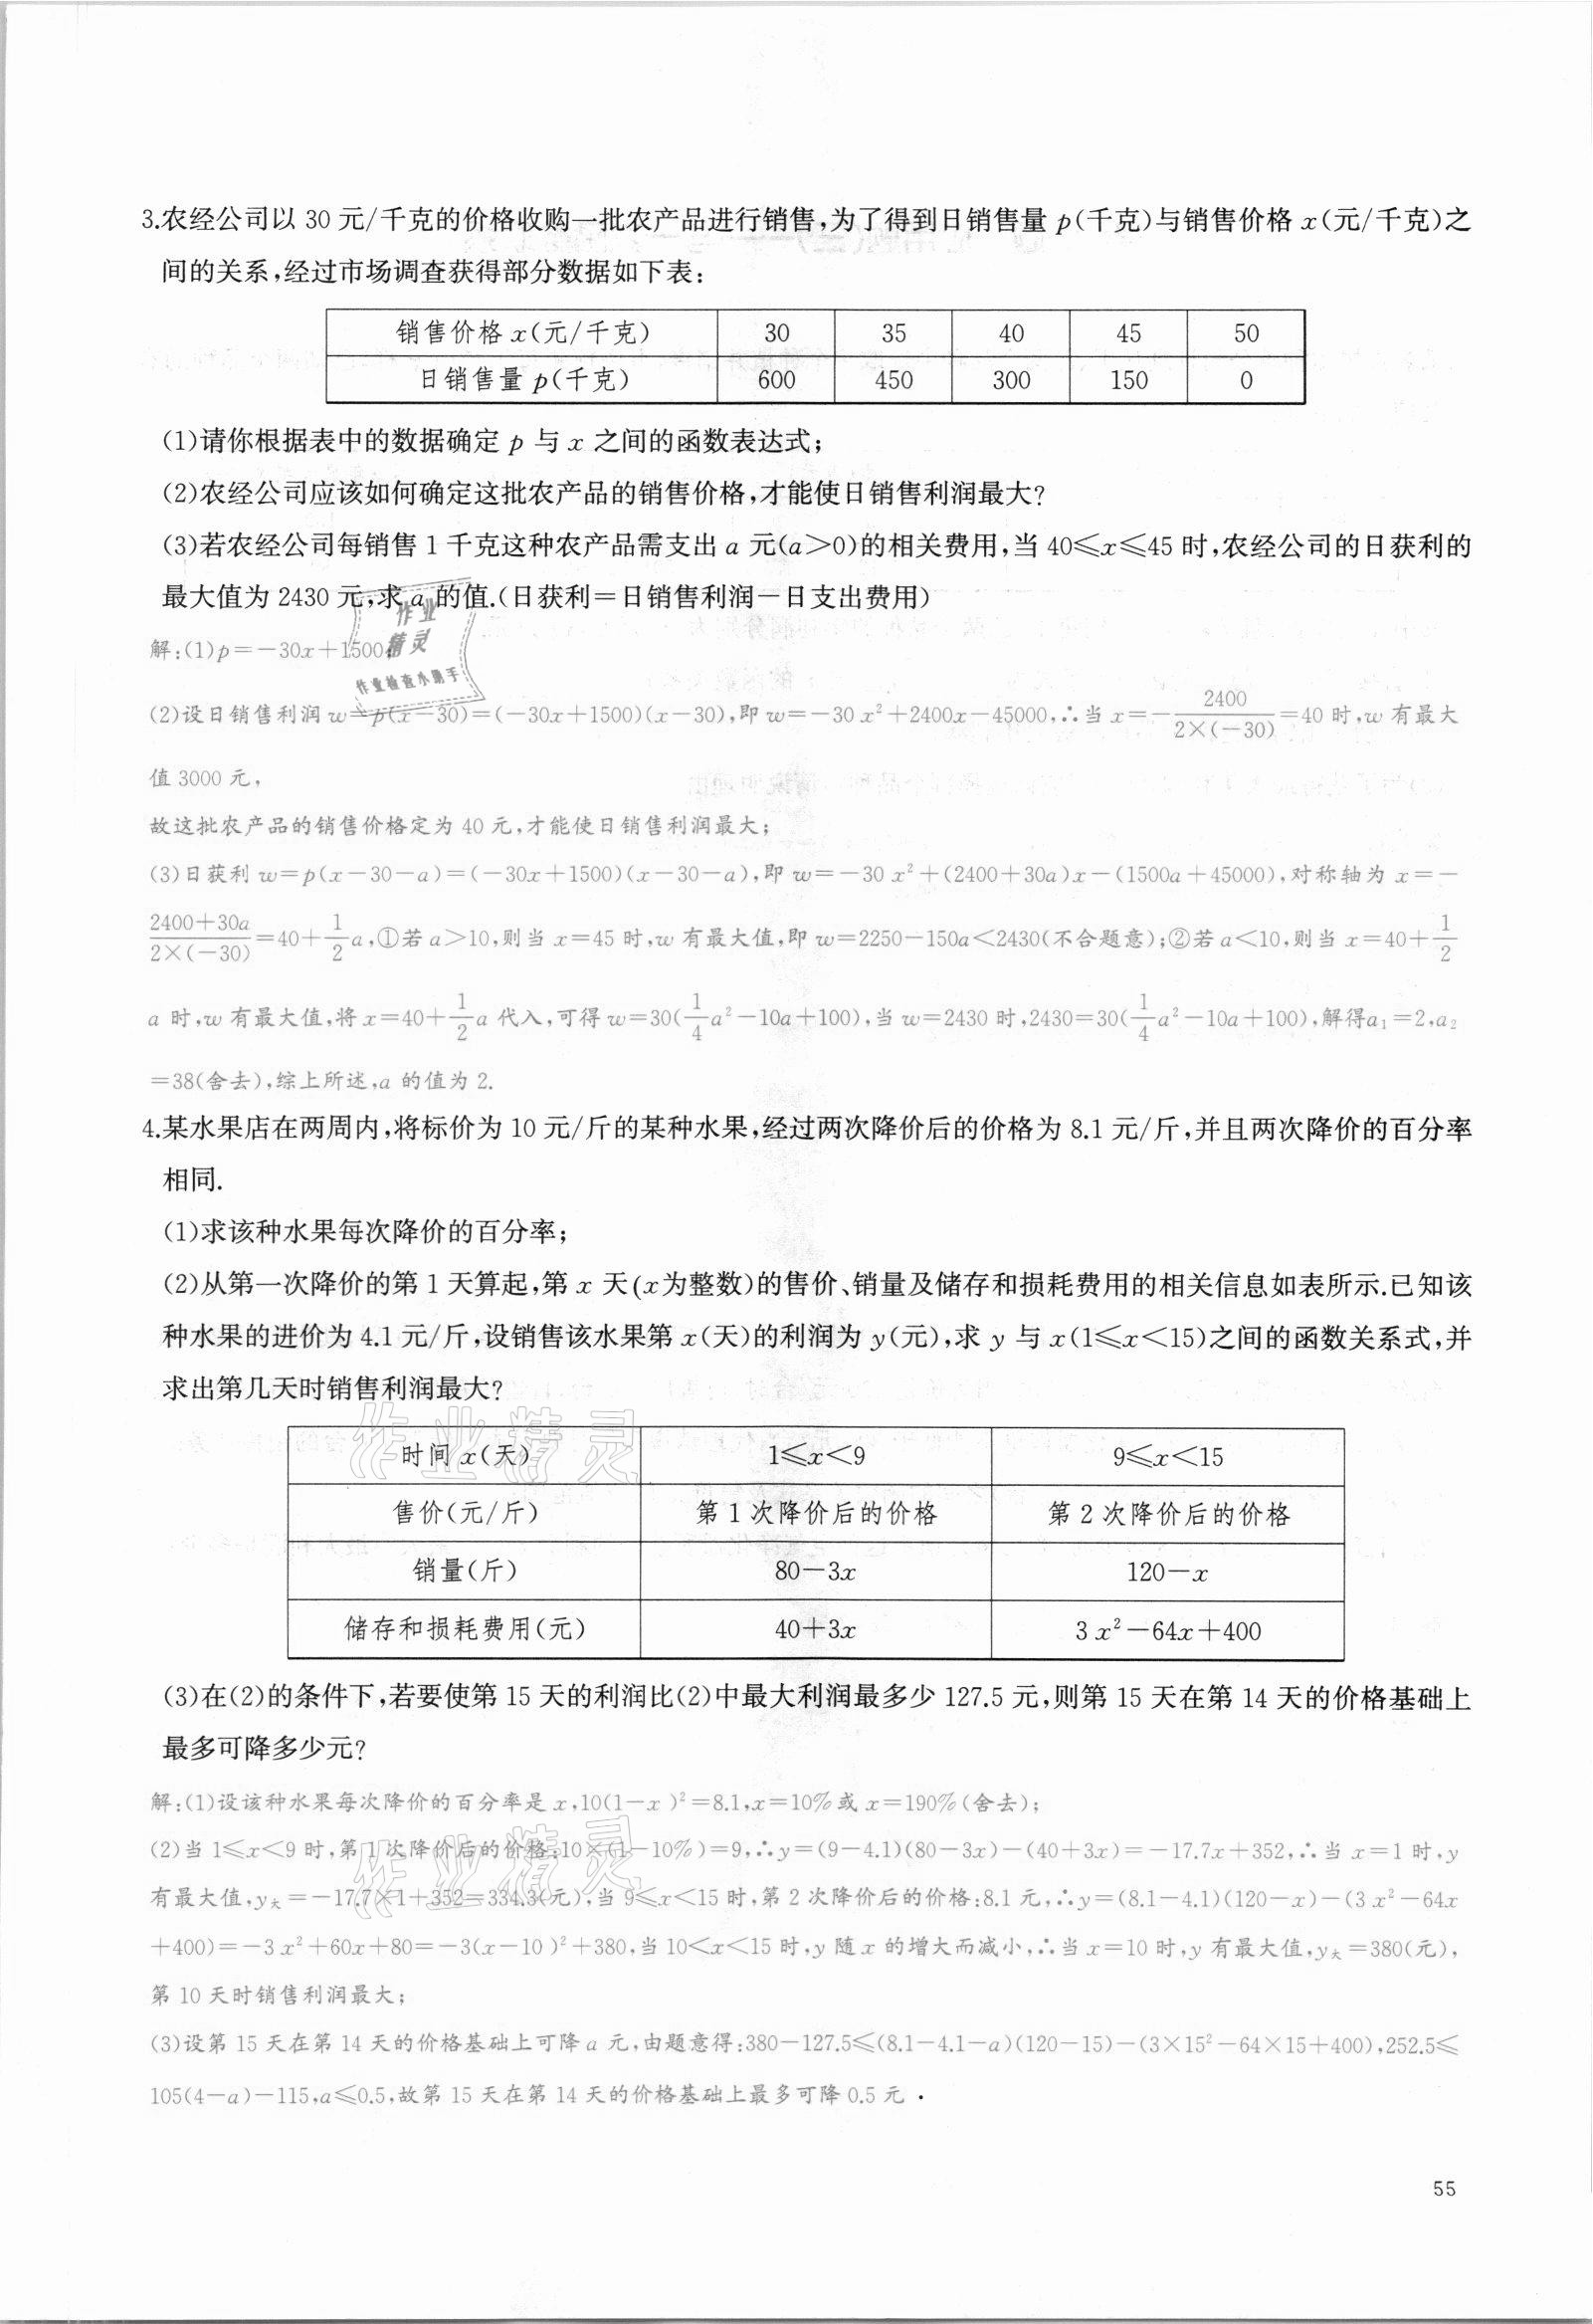 3.农经公司以 30 元/千克的价格收购一批农产品进行销售,为了得到日销售量 p(千克)与销售价格 x(元/千克)之
间的关系,经过市场调查获得部分数据如下表:
销售价格 x(元/千克) 30 35 40 45 50
日销售量 p(千克) 600 450 300 150 0
(1)请你根据表中的数据确定 p 与 x 之间的函数表达式;
(2)农经公司应该如何确定这批农产品的销售价格,才能使日销售利润最大?
(3)若农经公司每销售 1 千克这种农产品需支出 a 元(a>0)的相关费用,当 40≤x≤45 时,农经公司的日获利的
最大值为 2430 元,求 a 的值.(日获利=日销售利润-日支出费用)
作业
精灵
作业检查小助手
解:(1)p=-30x+1500
(2)设日销售利润 w=p(x-30)=(-30x+1500)(x-30),即 w=-30 x²+2400x-45000,∴当 x=-2400/(2×(-30))=40 时,w 有最大
值 3000 元,
故这批农产品的销售价格定为 40 元,才能使日销售利润最大;
(3)日获利 w=p(x-30-a)=(-30x+1500)(x-30-a),即 w=-30 x²+(2400+30a)x-(1500a+45000),对称轴为 x=-
(2400+30a)/(2×(-30))=40+1/2a,①若 a>10,则当 x=45 时,w 有最大值,即 w=2250-150a<2430(不合题意);②若 a<10,则当 x=40+1/2
a 时,w 有最大值,将 x=40+1/2a 代入,可得 w=30(1/4a²-10a+100),当 w=2430 时,2430=30(1/4a²-10a+100),解得a₁=2,a₂
=38(舍去),综上所述,a 的值为 2.
4.某水果店在两周内,将标价为 10 元/斤的某种水果,经过两次降价后的价格为 8.1 元/斤,并且两次降价的百分率
相同.
(1)求该种水果每次降价的百分率;
(2)从第一次降价的第 1 天算起,第 x 天(x为整数)的售价、销量及储存和损耗费用的相关信息如表所示.已知该
种水果的进价为 4.1 元/斤,设销售该水果第 x(天)的利润为 y(元),求 y 与 x(1≤x<15)之间的函数关系式,并
求出第几天时销售利润最大?
作业精灵
时间 x(天) 1≤x<9 9≤x<15
售价(元/斤) 第 1 次降价后的价格 第 2 次降价后的价格
销量(斤) 80-3x 120-x
储存和损耗费用(元) 40+3x 3 x²-64x+400
(3)在(2)的条件下,若要使第 15 天的利润比(2)中最大利润最多少 127.5 元,则第 15 天在第 14 天的价格基础上
最多可降多少元?
解:(1)设该种水果每次降价的百分率是 x,10(1-x )²=8.1,x=10%或 x=190%(舍去);
(2)当 1≤x<9 时,第 1 次降价后的价格:10×(1-10%)=9,∴y=(9-4.1)(80-3x)-(40+3x)=-17.7x+352,∴当 x=1 时,y
作业精灵
有最大值,y大=-17.7×1+352=334.3(元),当 9≤x<15 时,第 2 次降价后的价格:8.1 元,∴y=(8.1-4.1)(120-x)-(3 x²-64x
+400)=-3 x²+60x+80=-3(x-10 )²+380,当 10<x<15 时,y 随 x 的增大而减小,∴当 x=10 时,y 有最大值,y大=380(元),
第 10 天时销售利润最大;
(3)设第 15 天在第 14 天的价格基础上可降 a 元,由题意得:380-127.5≤(8.1-4.1-a)(120-15)-(3×15²-64×15+400),252.5≤
105(4-a)-115,a≤0.5,故第 15 天在第 14 天的价格基础上最多可降 0.5 元 .
55